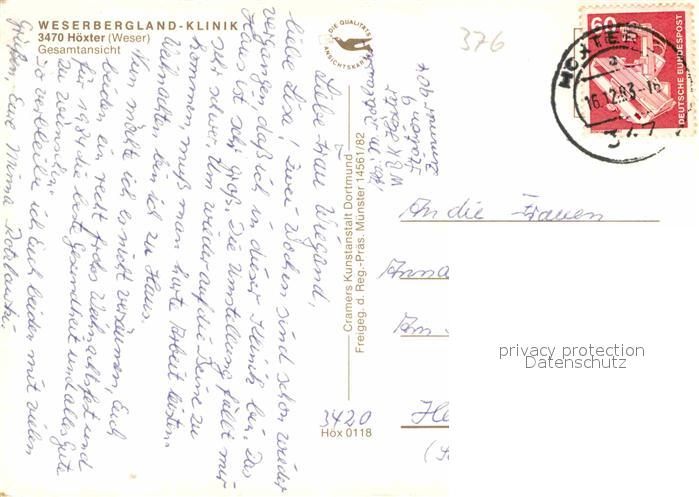 WESERBERGLAND-KLINIK
3470 Höxter (Weser)
Gesamtansicht
DIE QUALITÄTS
ANSICHTSKARTE
376
60
DEUTSCHE BUNDESPOST
HÖXTER
16.12.83-16
Liebe Frau Wiegand,
liebe Lisa! Zwei Wochen sind schon wieder
vergangen daß ich in dieser Klinik bin. Das
Haus ist sehr groß. Die Umstellung fällt mir
sehr schwer. Um wieder auf die Beine zu
kommen, muß man harte Arbeit leisten.
Weihnachten bin ich zu Haus.
Nun möchte ich es nicht versäumen, Euch
beiden ein recht frohes Weihnachtsfest und
für 1984 die beste Gesundheit und alles Gute
zu wünschen.
So verbleibe ich Euch beiden mit vielen
Grüßen, Eure Minna
Station 9
Zimmer 404
Cramers Kunstanstalt Dortmund
Freigeg. d. Reg.-Präs. Münster 14561/82
An die Frauen
Anna
Am
3420
He
Höx 0118
privacy protection
Datenschutz